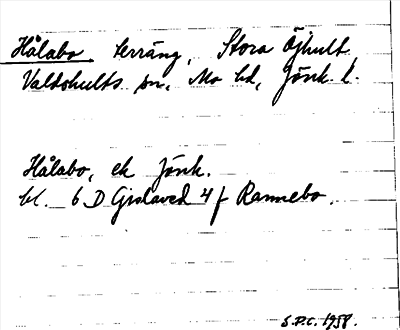 Hålabo, terräng, Stora Öjhult
Valdshults sn, Mo hd, Jönk. l.
Hålabo, ek Jönk.
bl. 6 D Gislaved 4 f Rannebo.
S.P.C. 1958.